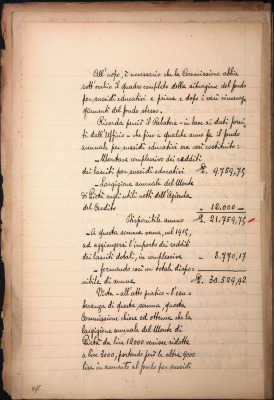 All'uopo, è necessario che la Commissione abbia
sott'occhio il quadro completo della situazione del fondo
per sussidi educativi e prima e dopo i vari rimaneg-
giamenti del fondo stesso.
Ricorda perciò il Relatore - in base ai dati forni-
ti dall'Ufficio - che fino a qualche anno fa il fondo
annuale per sussidi educativi era così costituito:
- Montare complessivo dei redditi
dei lasciti per sussidi educativi £. 9.759,75
- Largizione annuale del Monte
di Pietà sugli utili netti dell'Azienda
del Credito " 12.000 -
Disponibile annuo £. 21.759,75
- A questa somma venne, nel 1915,
ad aggiungersi l'importo dei redditi
dei lasciti dotali, in complessive " 8.770,17
- formando così un totale dispo-
nibile di annue £. 30.529,92
Vista - all'atto pratico - l'esu-
beranza di questa somma, questa
Commissione chiese ed ottenne che la
largizione annuale del Monte di
Pietà da lire 12000 venisse ridotta
a lire 3000, portando poi le altre 9000
lire in aumento al fondo per sussidi